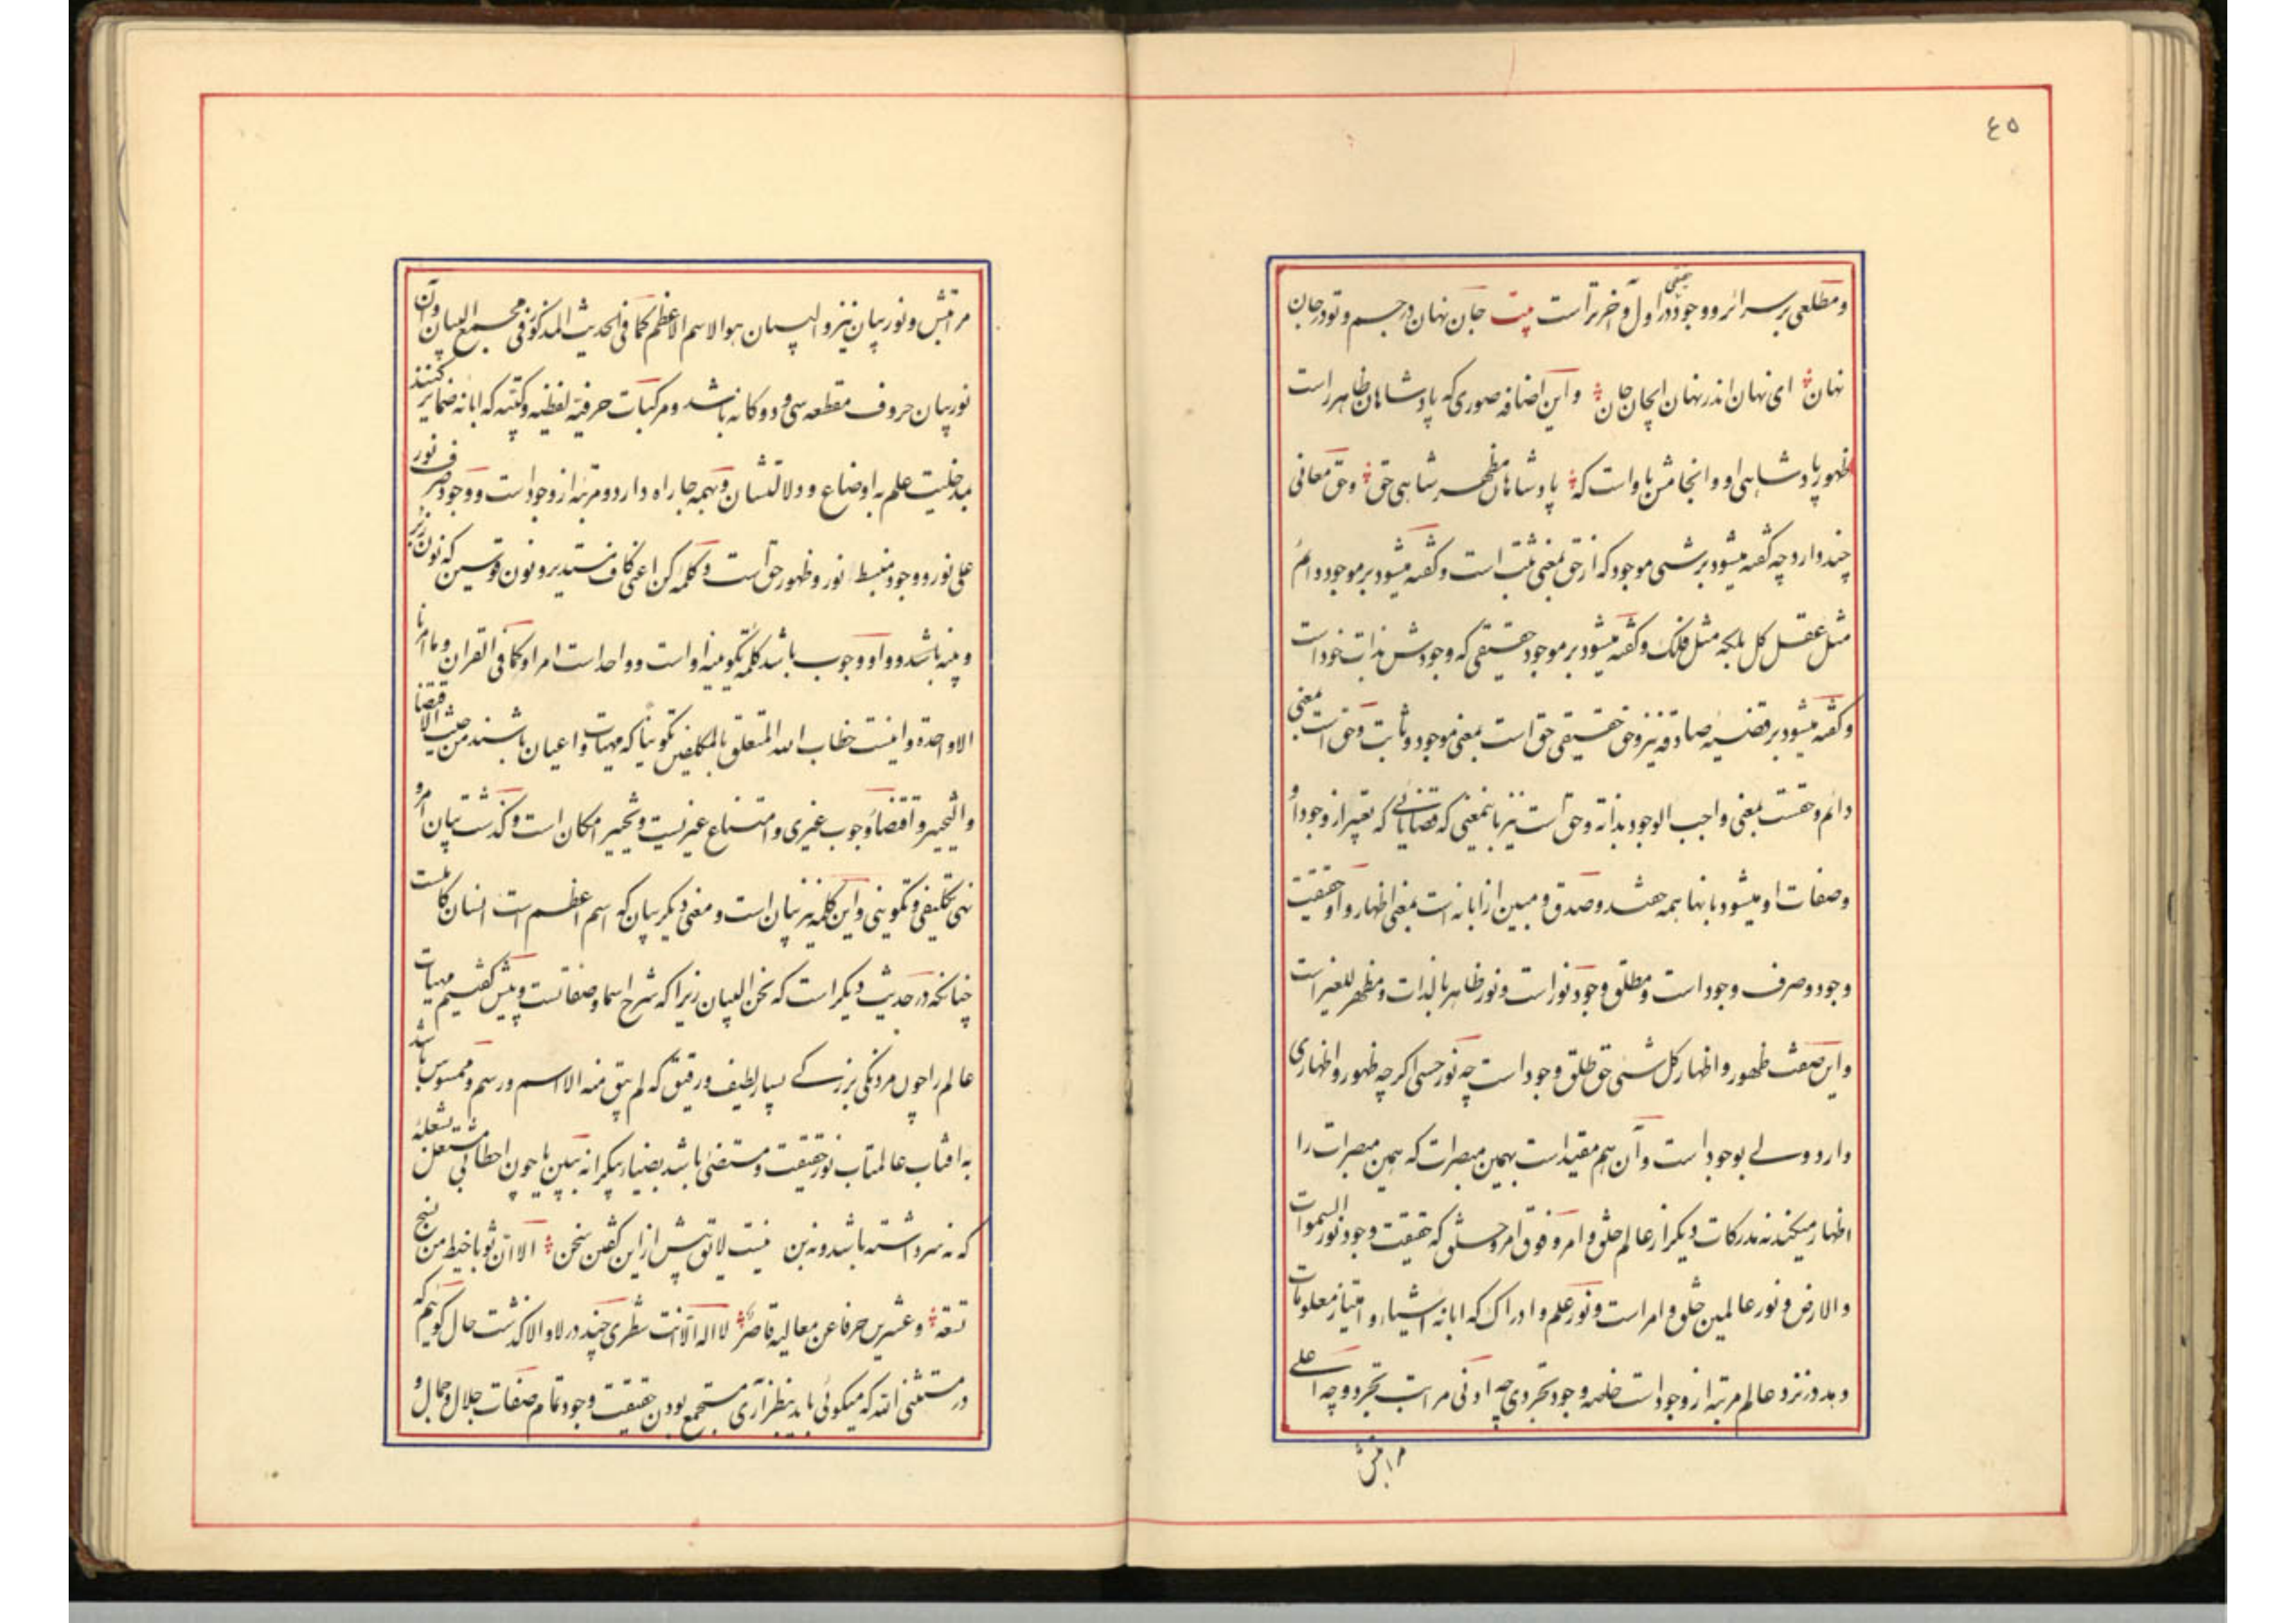 ٤٥
و مطلعی بر سرائر و وجود حقیقی در اول و آخر برتر است بیت جان نهان در جسم و تو در جان
نهان ای نهان اندر نهان ای جان جان و این اضافه صوری که پادشاهان ظاهر راست
ظهور پادشاهی او و انجامش باو است که پادشاهان مظهر شاهی حق و حق معانی
چند دارد چه گفته میشود بر شیء موجود که از حق بمعنی ثبت است و گفته میشود بر موجود دائم
مثل عقل کل بلکه مثل فلک و گفته میشود بر موجود حقیقی که وجودش بذات خود است
و گفته میشود بر قضیه صادقه نیز و حق حقیقی حق است بمعنی موجود و ثابت و حق است بمعنی
دائم و حقست بمعنی واجب الوجود بذاته و حق است نیز باینمعنی که قضایائی که تعبیر از وجود او
و صفات او میشود بانها همه حقند و صدق و مبین از ابانه است بمعنی اظهار و او حقیقت
وجود و صرف وجود است و مطلق وجود نور است و نور ظاهر بالذات و مظهر للغیر است
و این صفت ظهور و اظهار کل شیء حق طلق وجود است چه نور حسی اگر چه ظهور و اظهاری
دارد ولی بوجود است و آن هم مقید است بهمین مبصرات که همین مبصرات را
اظهار میکند نه مدرکات دیگر از عالم خلق و امر و فوق امر و خلق که حقیقت وجود نور السموات
والارض و نور عالمین خلق و امر است و نور علم و ادراک که ابانه اشیاء و امتیاز معلومات
بد در نزد عالم مرتبه از وجود است خاصه وجود تجردی چه ادنی مراتب تجرد و چه اعلی
مراتبش
مراتبش و نور بیان نیز و البیان هوالاسم الاعظم کما فی الحدیث المذکور فی مجمع البیان و آن
نور بیان حروف مقطعه سی و دوگانه باشد و مرکبات حرفیه لفظیه و کتبیه که ابانه ضمایر کنند
بمدخلیت علم به اوضاع و دلالتشان و بهمه جا راه دارد و مرتبه از وجود است و وجود صرف نور
علی نور و وجود منبسط نور و ظهور حق است و کلمه کن اعنی کاف مستدیر و نون قوسین که نون زبر
و بینه باشد و واو وجوب باشد کلمه تکوینیه او است و واحد است امر او کما فی القران و ما امرنا
الا واحدة و اینست خطاب الله المتعلق بالمکلفین تکوینا که مهیات و اعیان باشند من حیث الاقتضا
والتخییر و اقتضا وجوب غیری و امتناع غیریست و تخییر امکان است و گذشت بیان امر و
نهی تکلیفی و تکوینی و این کلمه نیز بیان است و معنی دیگر بیان که اسم اعظم است انسان کاملست
چنانکه در حدیث دیگر است که نحن البیان زیرا که شرح اسما و صفاتست و پیش گفتیم مهیات
عالم را چون مردنگی بزرگی بسیار لطیف و رقیق که لم یبق منه الا اسم و رسم و ممسوس باشد
به افتاب عالمتاب نور حقیقت و مستضئ باشد بضیاء بیکرانه ببین یا چون احطابی مشتعل بشعله
که نه سر داشته باشد و نه بن نیست لایق پیش ازین گفتن سخن الا ان ثوبا خیط من نسج
تسعة و عشرین حرفا عن معالیه قاصر لا اله الا انت شطری چند در لا و الا گذشت حال گوئیم که
در مستثنی الله که میگوئی باید بنظر آری مستجمع بودن حقیقت وجود تمام صفات جلال و جمال و